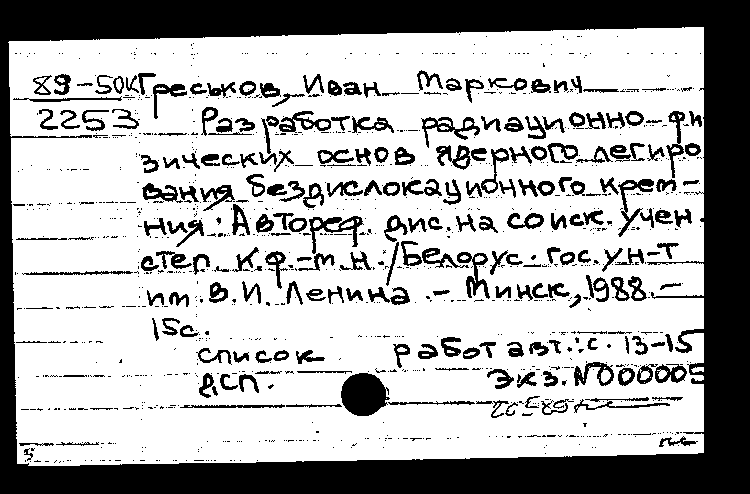 89-50к Греськов, Иван Маркович
2253 Разработка радиационно-фи
зических основ ядерного легиро
вания бездислокационного крем-
ния: Автореф. дис. на соиск. учен.
степ. к.ф.-м.н. / Белорус. гос. ун-т
им. В.И. Ленина. - Минск, 1988. -
15с.
список работ авт.: с. 13-15
ДСП. Экз. N000005